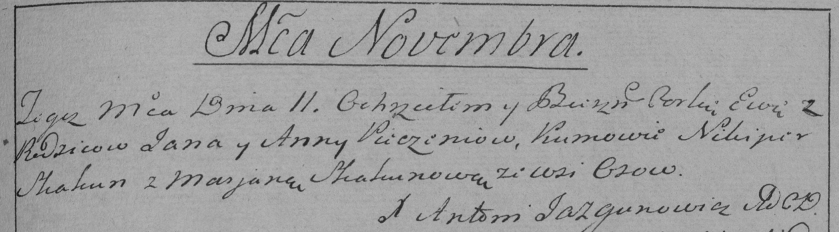 Mca Novembra.
Tegoz Mca Dnia 11. Ochrzciłem y Bierzm Corkę Ewę z
Rodzicow Jana y Anny Pieczeniow, Kumowie Nikiper
Skakun z Marjaną Skakunową ze wsi Osow.
X Antoni Jazgunowicz